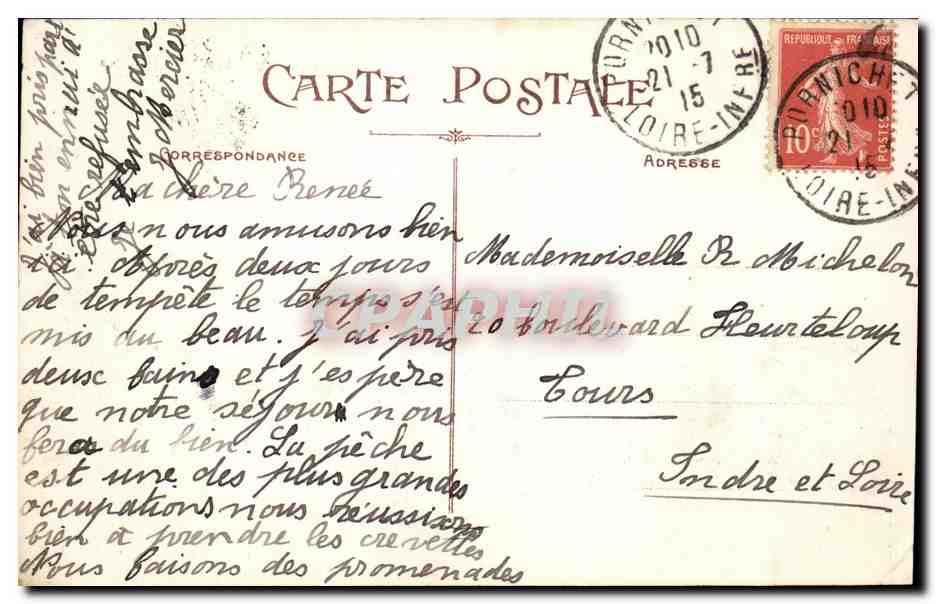 CARTE POSTALE
CORRESPONDANCE
ADRESSE
Ma chère Renée
Nous nous amusons bien
ici. Après deux jours
de tempête le temps s'est
mis au beau. J'ai pris
deux bains et j'espère
que notre séjour nous
fera du bien. La pêche
est une des plus grandes
occupations nous réussissons
bien à prendre les crevettes
Nous faisons des promenades
J'ai bien
être refusée
Je t'embrasse
J Mercier
Mademoiselle R Michelon
20 Boulevard Heurteloup
Tours
Indre et Loire
PORNICHET
20 10
21 - 7
15
LOIRE-INFRE
REPUBLIQUE FRANÇAISE
10c
POSTES
PORNICHET
20 10
21
15
LOIRE-INF
CPAPHIL